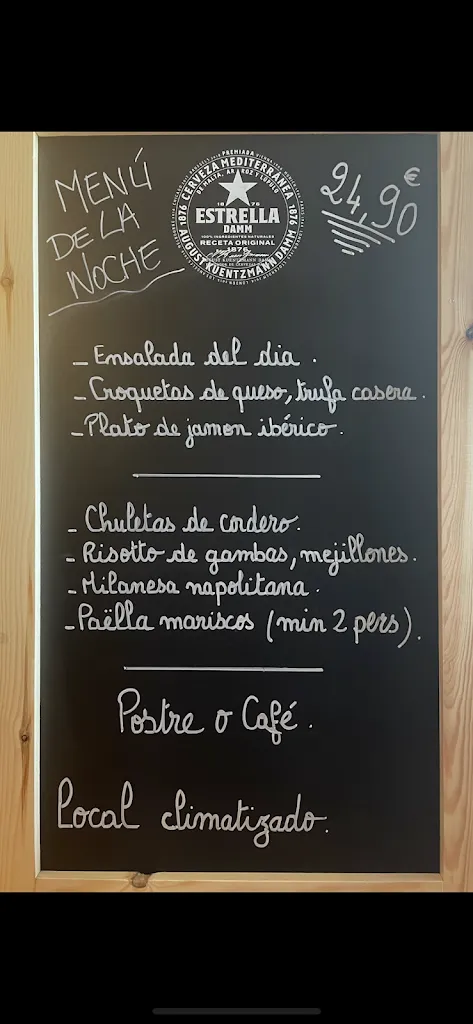 MENÚ
DE LA
NOCHE
PREMIADA
CERVEZA MEDITERRÁNEA
DE MALTA, ARROZ Y LÚPULO
1876
1876
1876
ESTRELLA
DAMM
100% INGREDIENTES NATURALES
RECETA ORIGINAL
1876
AUGUST KUENTZMANN DAMM
24,90€
- Ensalada del dia.
- Croquetas de queso, trufa casera.
- Plato de jamon ibérico.
- Chuletas de cordero.
- Risotto de gambas, mejillones.
- Milanesa napolitana.
- Paëlla mariscos (min 2 pers).
Postre o Café.
Local climatizado.